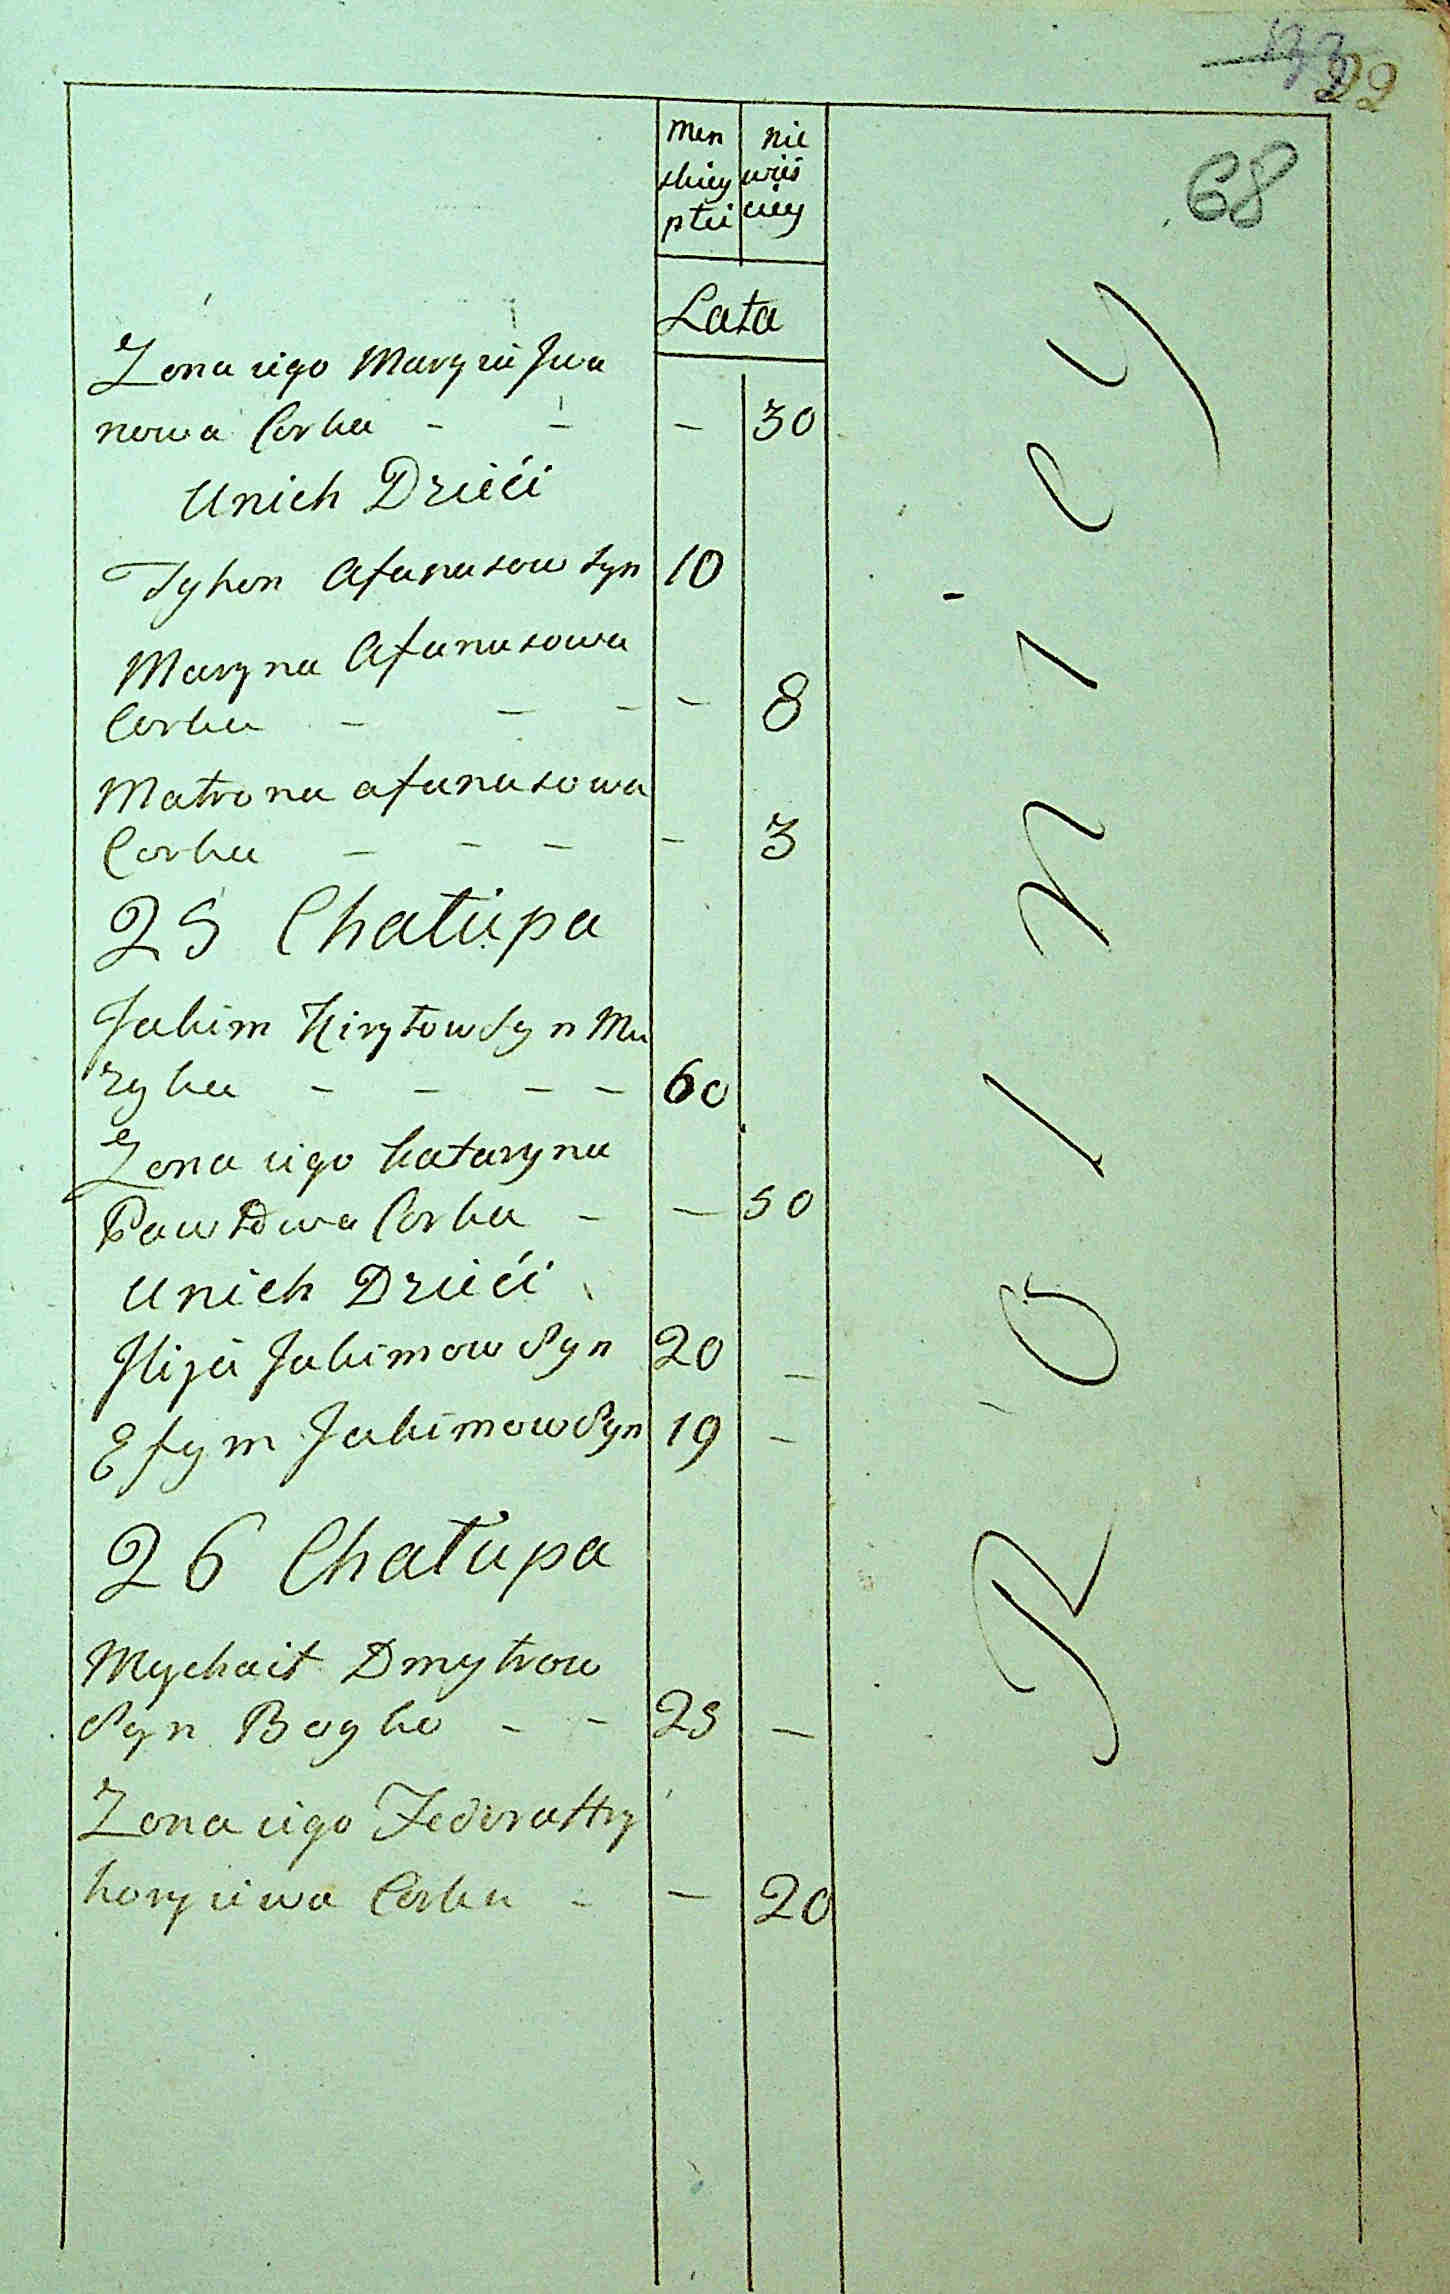 22
68
Men nie
skiey wieś
płci ciey
Lata
Zona iego Maryia Iwa
nowa Corka - - - 30
U nich Dzieći
Tyhon Afanasow Syn 10
Maryna Afanasowa
Corka - - - - 8
Matrona afanasowa
Corka - - - - 3
25 Chałupa
Jakim Kiryłow Syn Mu
zyka - - - - 60
Zona iego Kataryna
Pawłowa Corka - - 50
U nich Dzieći
Ilija Jakimow Syn 20 -
Efym Jakimow Syn 19 -
26 Chałupa
Mychaił Dmytrow
Syn Boyko - - 25 -
Zona iego Fedora Hry
horyiewa Corka - - 20
Rolnicy